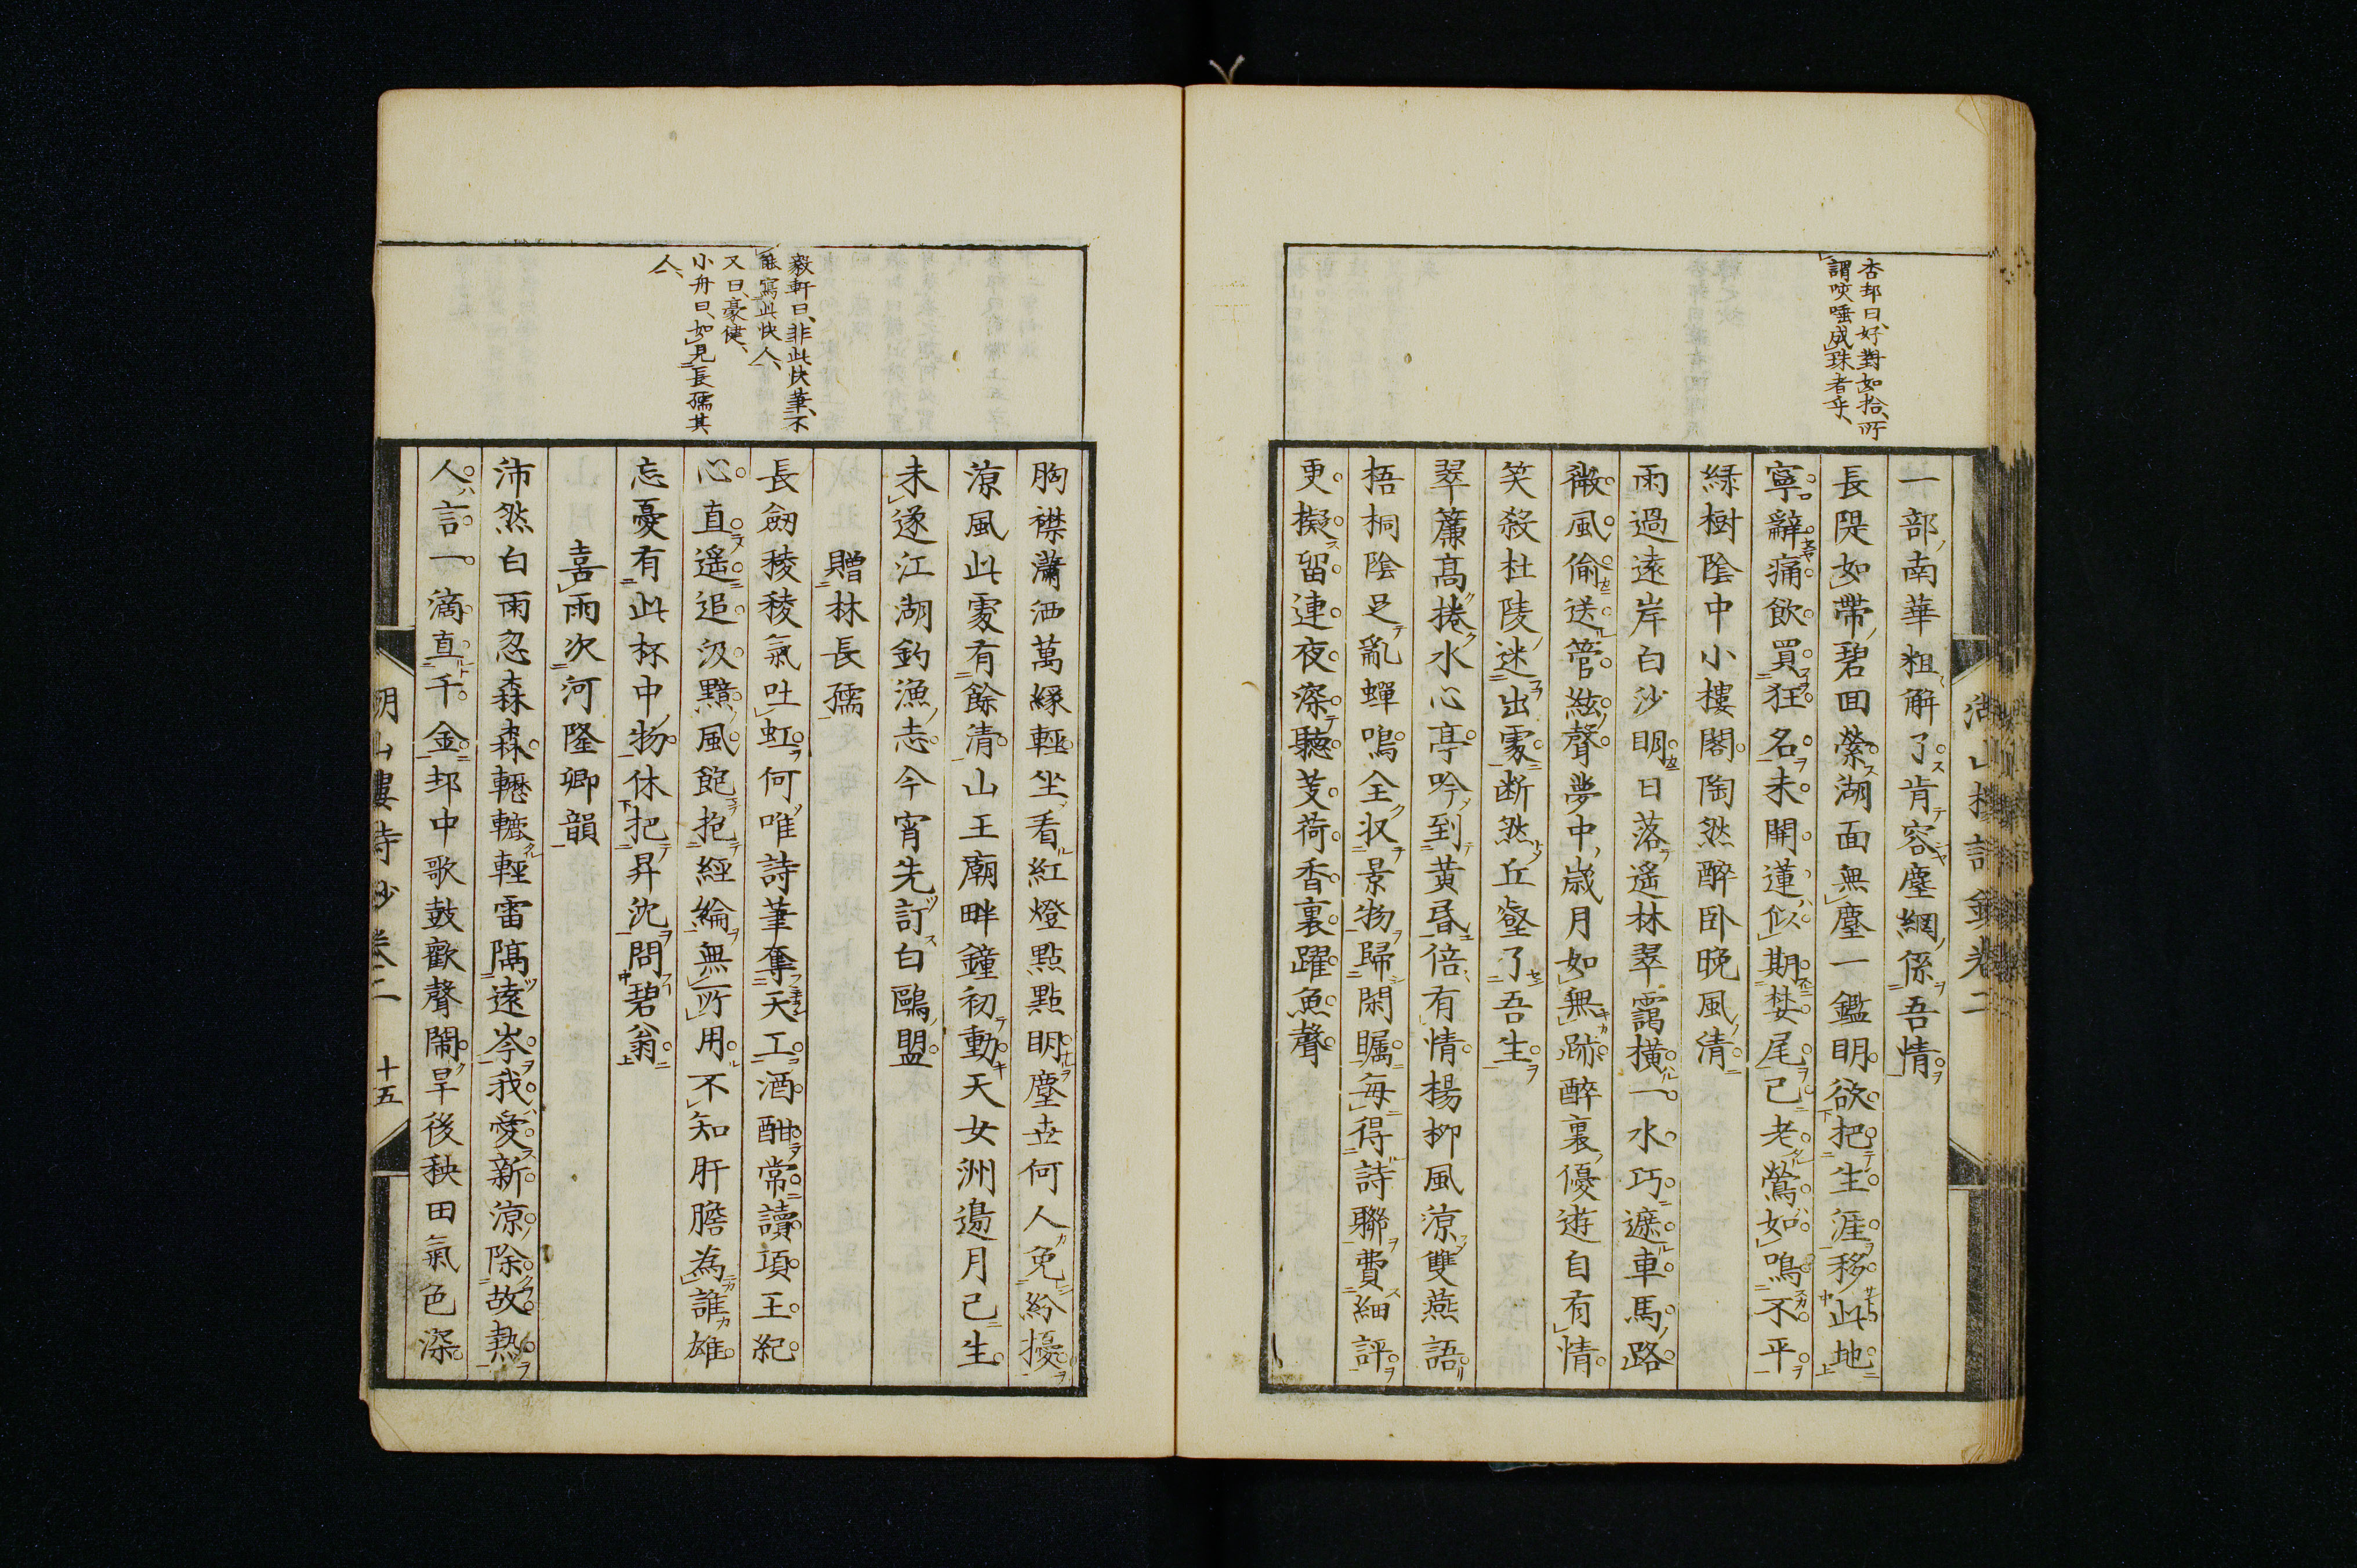 杏邨曰、好對如拾、所
謂咳唾成珠者乎、
一部南華粗解了肯容塵網係吾情
長隄如帶碧回縈湖面無塵一鑑明欲把生涯移此地
寧辭痛飲買狂名未開蓮似期婪尾已老鶯如鳴不平
緑樹陰中小樓閣陶然醉臥晚風清
雨過遠岸白沙明日落遙林翠靄橫一水巧遮車馬路
微風偷送管絃聲夢中歲月如無跡醉裏優遊自有情
笑殺杜陵迷出處断然丘壑了吾生
翠簾高捲水心亭吟到黄昏倍有情楊柳風涼雙燕語
梧桐陰足亂蟬鳴全收景物歸閑矚每得詩聯費細評
更擬留連夜深聽芰荷香裏躍魚聲
胸襟瀟洒萬緣輕坐看紅燈點點明塵世何人免紛擾
涼風此處有餘清山王廟畔鐘初動天女洲邊月已生
未遂江湖釣漁志今宵先訂白鷗盟
毅軒曰、非此快筆、不
能寫此快人、
又曰、豪健、
小舟曰、如見長孺其
人、
贈林長孺
長劒稜稜氣吐虹何唯詩筆奪天工酒酣常讀項王紀
心直遥追汲黯風飽抱經綸無所用不知肝膽為誰雄
忘憂有此杯中物休把昇沈問碧翁
喜雨次河隆卿韻
沛然白雨忍森森轣轆輕雷隔遠岑我愛新涼除故熱
人言一滴直千金邨中歌鼓歡聲鬧旱後秧田氣色深
湖山樓詩鈔卷二 十五